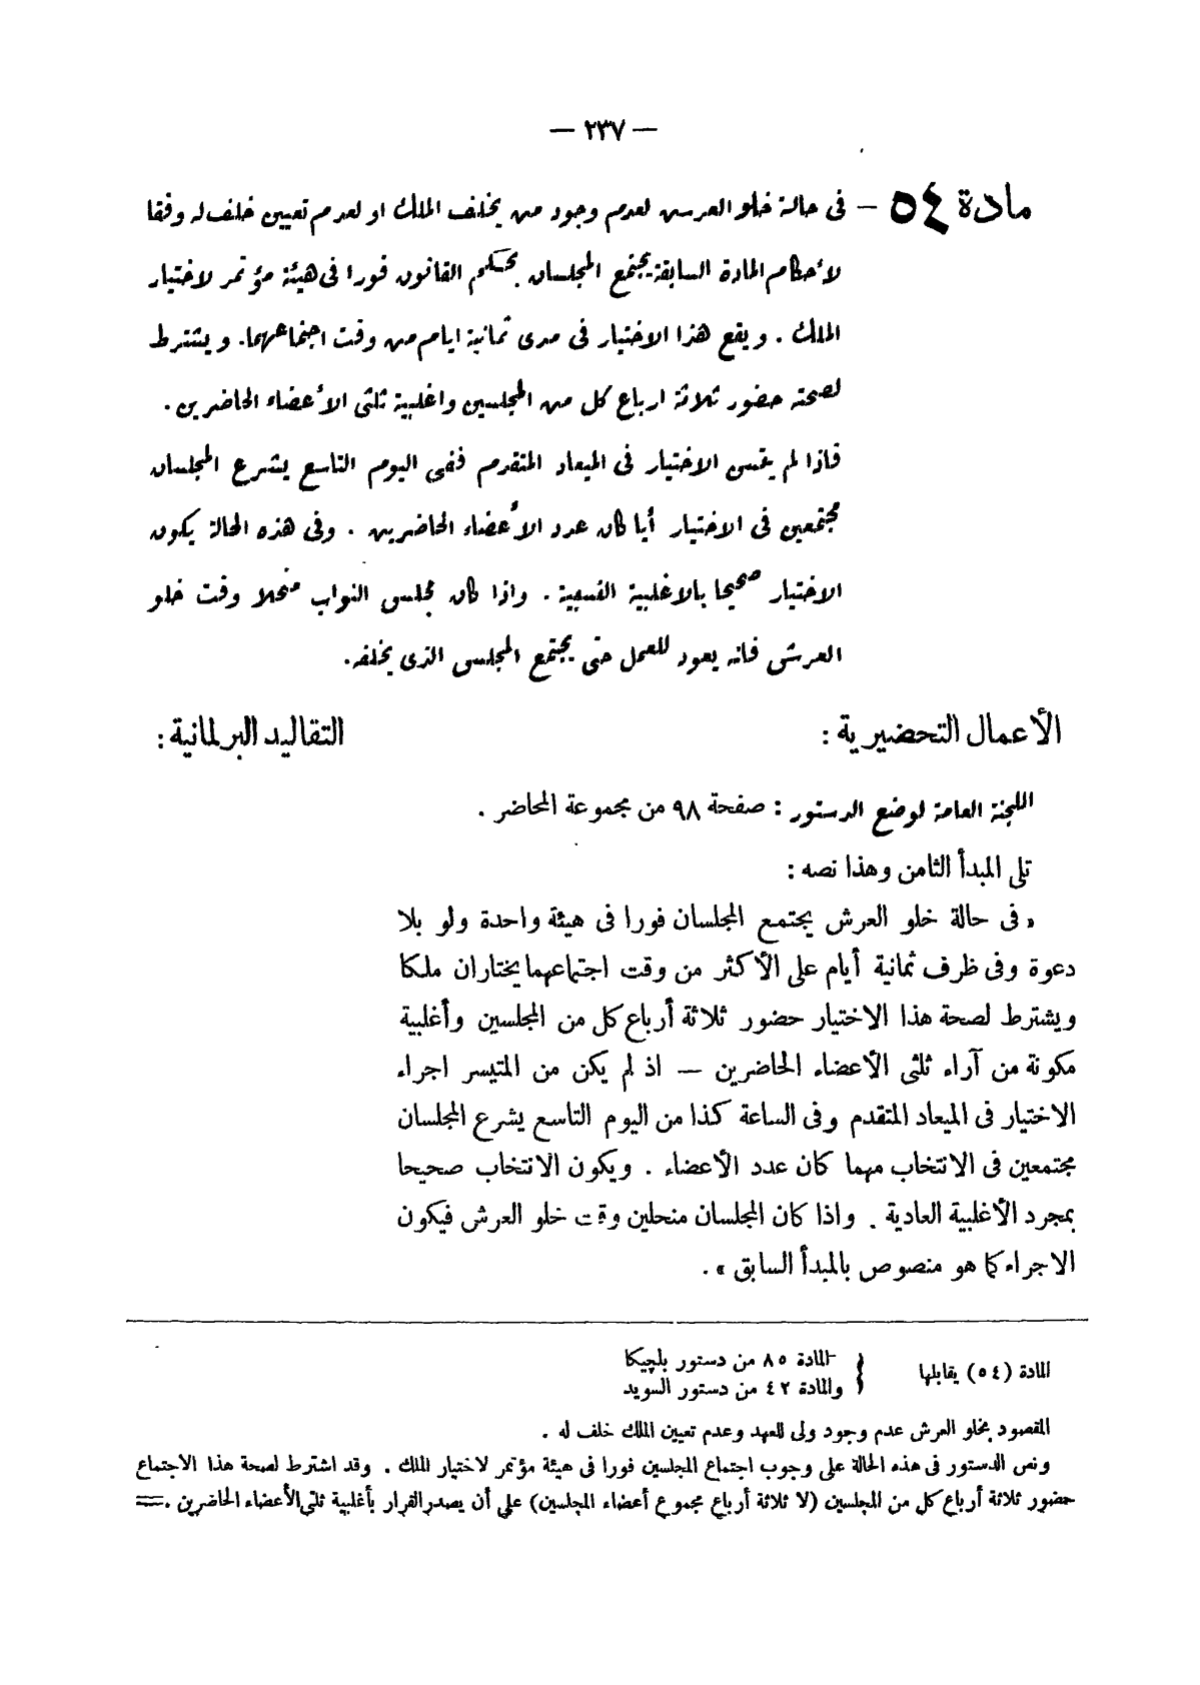 — ٢٣٧ —
مادة ٥٤ — فى حالة خلو العرش لعدم وجود من يخلف الملك او لعدم تعيين خلف له وفقا
لأحكام المادة السابقة يجتمع المجلسان بحكم القانون فورا فى هيئة مؤتمر لاختيار
الملك . ويقع هذا الاختيار فى مدى ثمانية ايام من وقت اجتماعهما. ويشترط
لصحته حضور ثلاثة ارباع كل من المجلسين واغلبية ثلثى الأعضاء الحاضرين .
فاذا لم يتسن الاختيار فى الميعاد المتقدم ففى اليوم التاسع يشرع المجلسان
مجتمعين فى الاختيار أيا كان عدد الأعضاء الحاضرين . وفى هذه الحالة يكون
الاختيار صحيحا بالاغلبية النسبية . واذا كان مجلس النواب منحلا وقت خلو
العرش فانه يعود للعمل حتى يجتمع المجلس الذى يخلفه.
الأعمال التحضيرية :
التقاليد البرلمانية :
اللجنة العامة لوضع الدستور : صفحة ٩٨ من مجموعة المحاضر .
تلى المبدأ الثامن وهذا نصه :
« فى حالة خلو العرش يجتمع المجلسان فورا فى هيئة واحدة ولو بلا
دعوة وفى ظرف ثمانية أيام على الأكثر من وقت اجتماعهما يختاران ملكا
ويشترط لصحة هذا الاختيار حضور ثلاثة أرباع كل من المجلسين وأغلبية
مكونة من آراء ثلثى الأعضاء الحاضرين — اذ لم يكن من المتيسر اجراء
الاختيار فى الميعاد المتقدم وفى الساعة كذا من اليوم التاسع يشرع المجلسان
مجتمعين فى الانتخاب مهما كان عدد الأعضاء . ويكون الانتخاب صحيحا
بمجرد الأغلبية العادية . واذا كان المجلسان منحلين وقت خلو العرش فيكون
الاجراء كما هو منصوص بالمبدأ السابق » .
المادة (٥٤) يقابلها { المادة ٨٥ من دستور بلچيكا
والمادة ٤٢ من دستور السويد
المقصود بخلو العرش عدم وجود ولى للعهد وعدم تعيين الملك خلف له .
ونص الدستور فى هذه الحالة على وجوب اجتماع المجلسين فورا فى هيئة مؤتمر لاختيار الملك . وقد اشترط لصحة هذا الاجتماع
حضور ثلاثة أرباع كل من المجلسين (لا ثلاثة أرباع مجموع أعضاء المجلسين) على أن يصدر القرار بأغلبية ثلثى الأعضاء الحاضرين . =